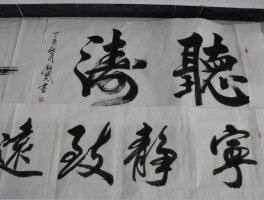 聽濤
寧靜致遠